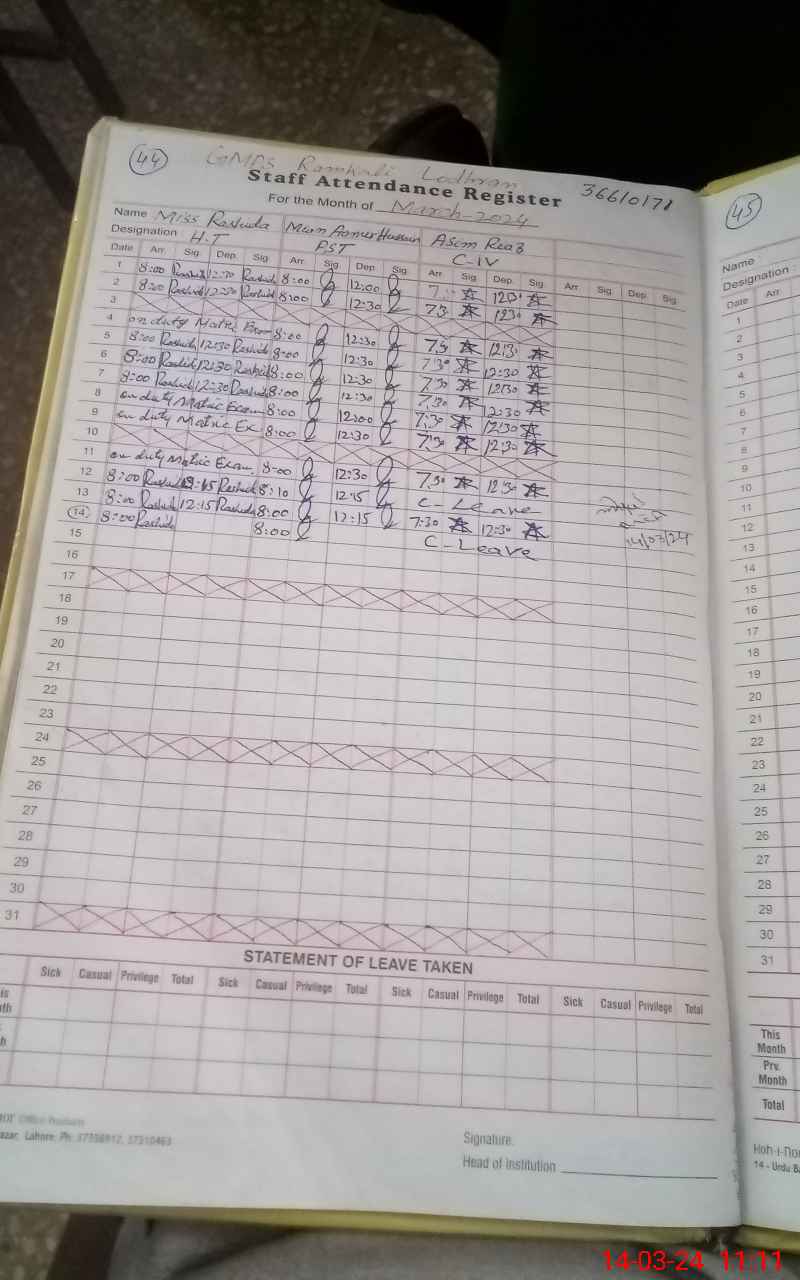 44 GMPS Ramkali Lodhran
Staff Attendance Register 36610171
For the Month of March-2024
Name Miss Rashida
Asim Riaz
Designation H.T PST C-IV
Date Arr. Sig. Dep. Sig. Arr. Sig. Dep. Sig. Arr. Sig. Dep. Sig. Arr. Sig. Dep. Sig.
1 8:00 Rashid 12:30 Rashid 8:00 12:00 7:30 12:30
2 8:00 Rashid 12:30 Rashid 8:00 12:30 7:30 12:30
3
4 on duty Matric Exam 8:00 12:30 7:30 12:30
5 8:00 Rashid 12:30 Rashid 8:00 12:30 7:30 12:30
6 8:00 Rashid 12:30 Rashid 8:00 12:30 7:30 12:30
7 8:00 Rashid 12:30 Rashid 8:00 12:30 7:30 12:30
8 on duty Matric Exam 8:00 12:00 7:30 12:30
9 on duty Matric Ex 8:00 12:30 7:30 12:30
10
11 on duty Matric Exam 8:00 12:30 7:30 12:30
12 8:00 Rashid Rashid 8:10 12:15 C-Leave
13 8:00 Rashid 12:15 Rashid 8:00 12:15 7:30 12:30
14 8:00 Rashid 8:00 C-Leave
14/03/24
15
16
17
18
19
20
21
22
23
24
25
26
27
28
29
30
31
STATEMENT OF LEAVE TAKEN
Sick Casual Privilege Total Sick Casual Privilege Total Sick Casual Privilege Total Sick Casual Privilege Total
Office Products
azar, Lahore. Ph: 37356912, 37310463
Signature.
Head of Institution
45
Name
Designation :
Date Arr.
1
2
3
4
5
6
7
8
9
10
11
12
13
14
15
16
17
18
19
20
21
22
23
24
25
26
27
28
29
30
31
This
Month
Prv.
Month
Total
14 - Urdu Ba
14-03-24 11:11